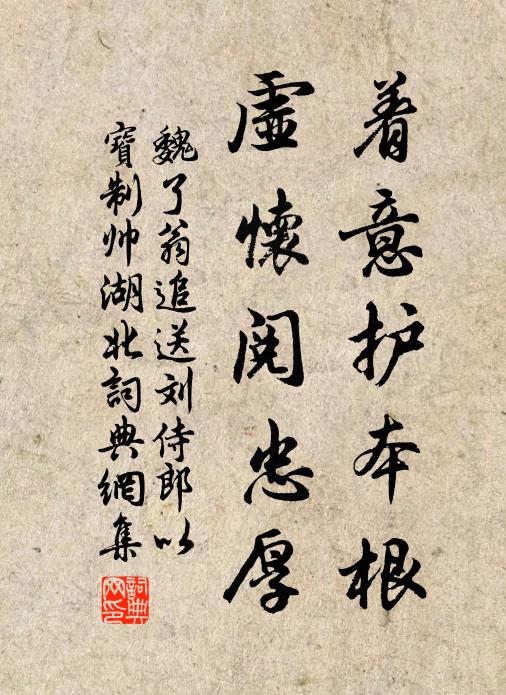 着意护本根
虛懷閱忠厚
魏了翁追送刘侍郎以
寶制帅湖北詞典網集
詞典网印